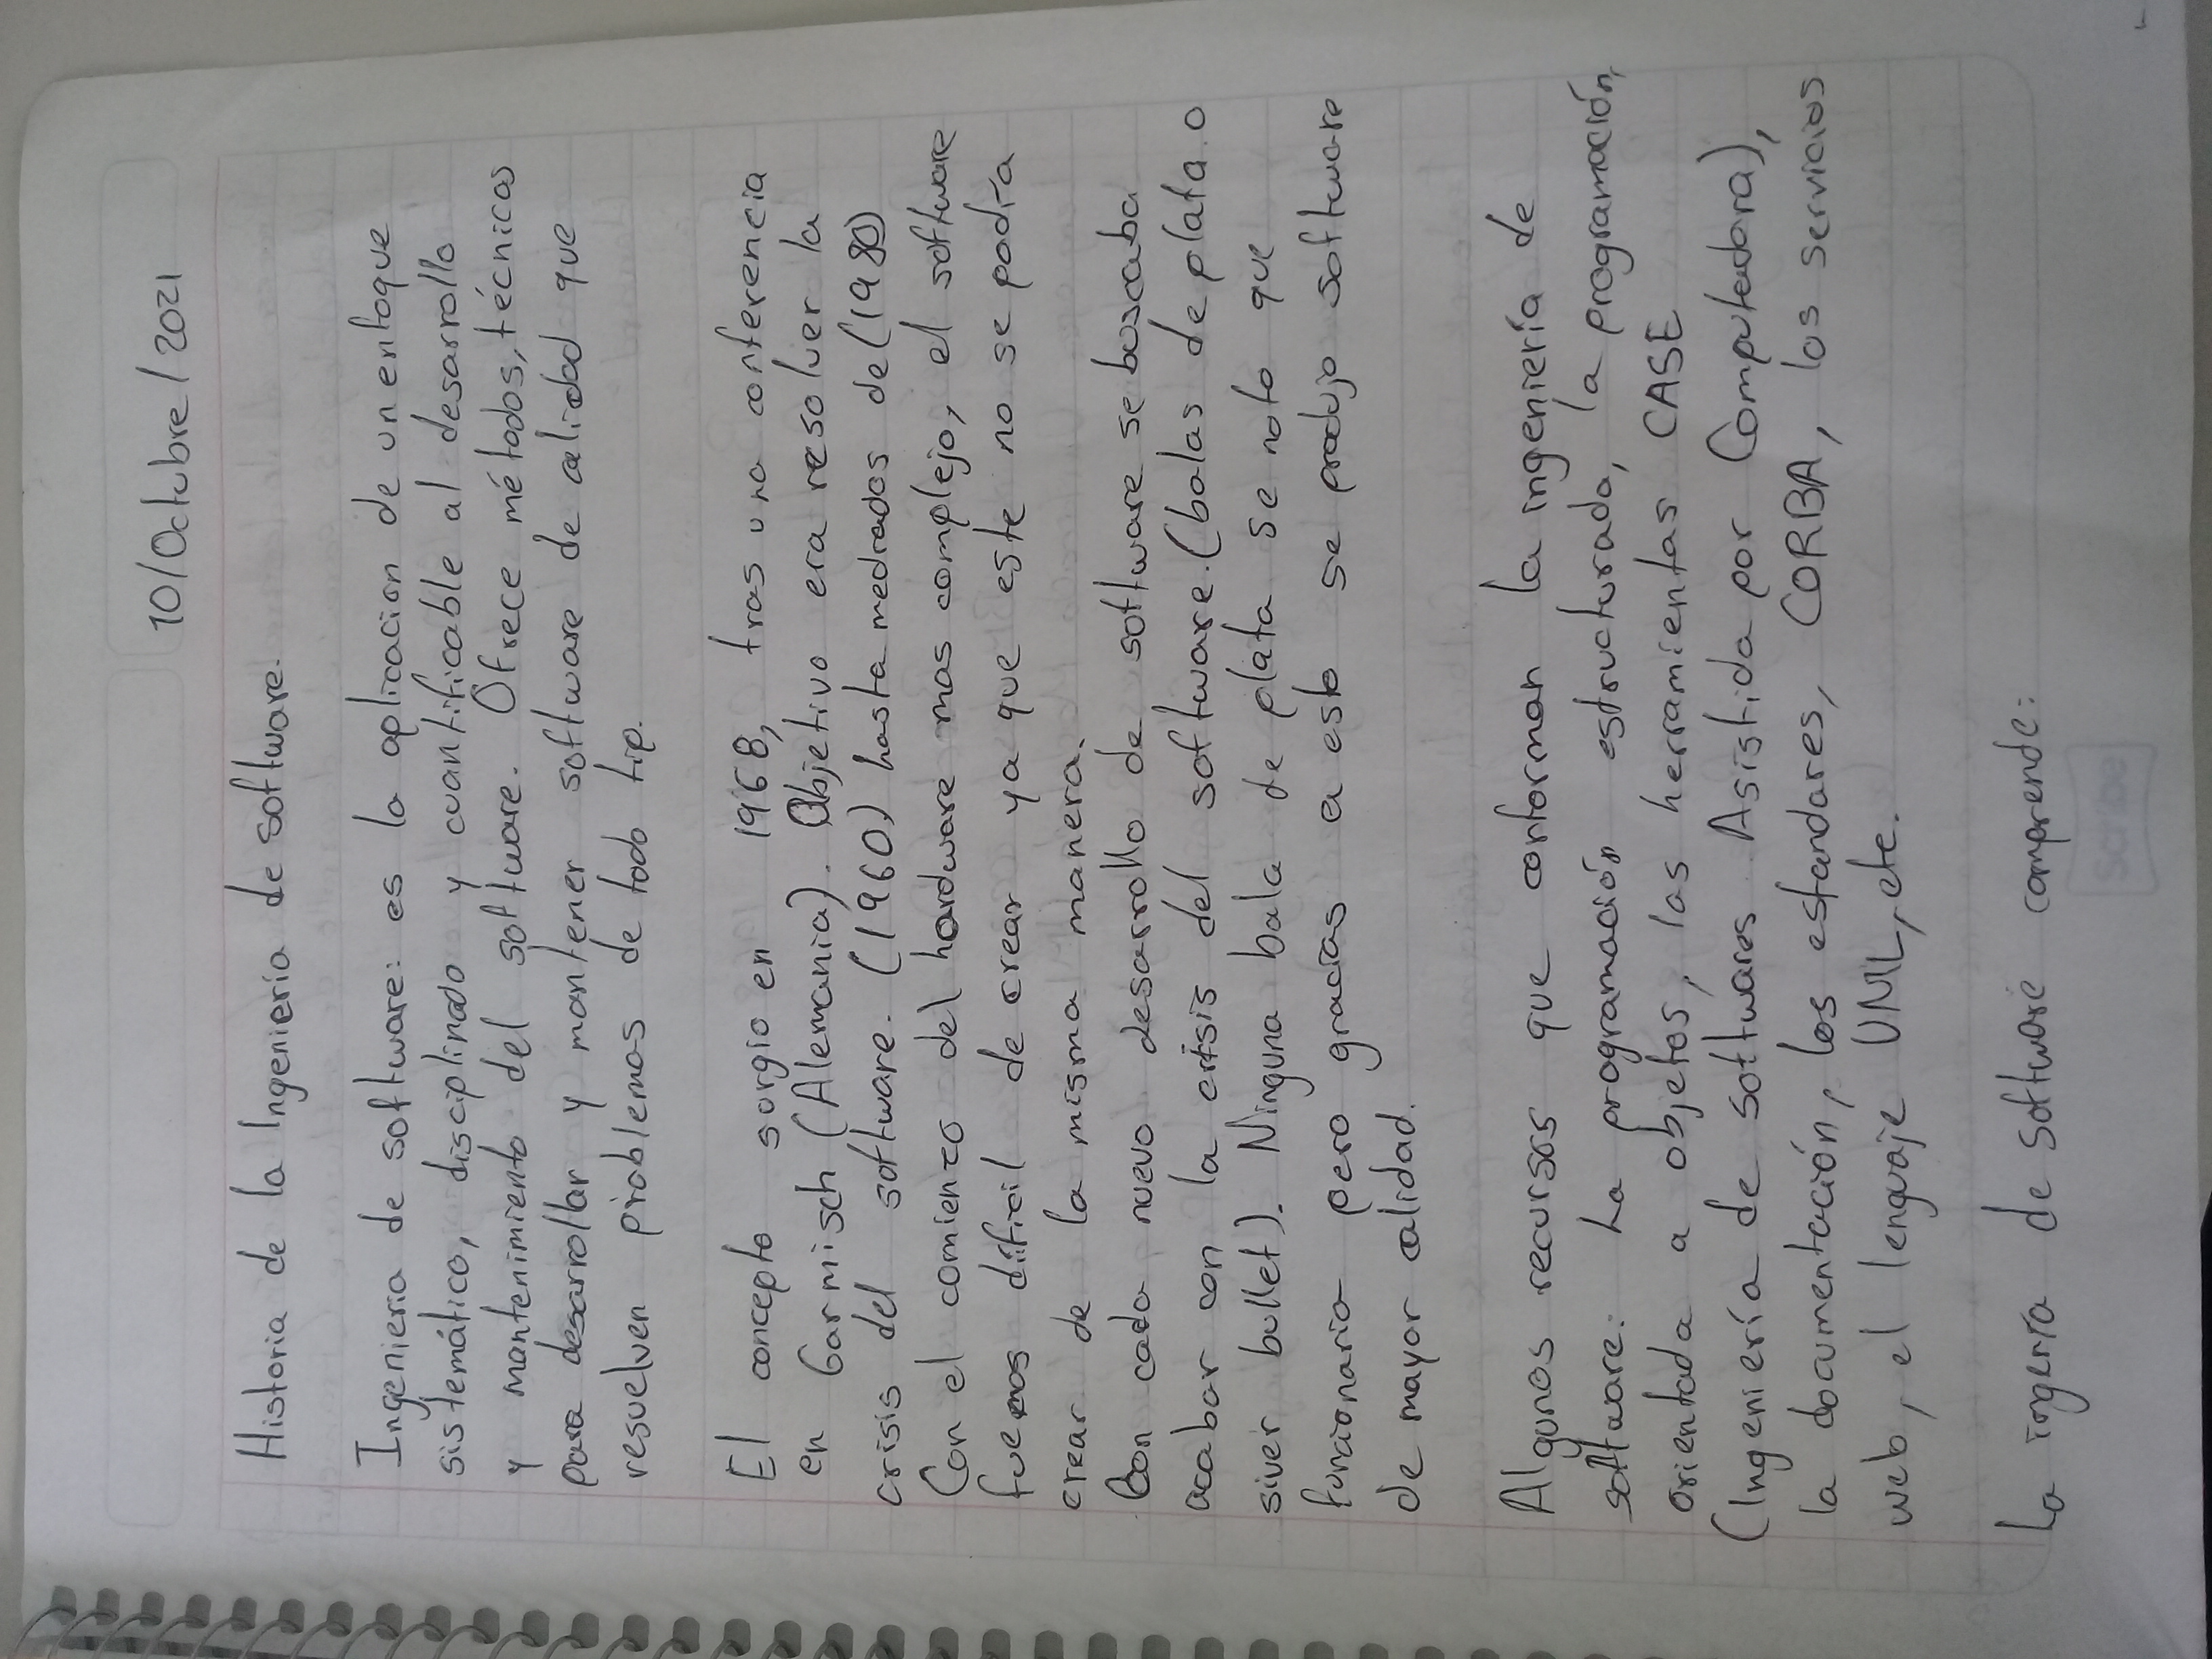 10/Octubre/2021
Historia de la Ingeniería de software.
Ingenieria de software: es la aplicacion de un enfoque
sistemático, disciplinado y cuantificable al desarrollo
y mantenimiento del software. Ofrece métodos, técnicas
para desarrollar y mantener software de calidad que
resuelven problemas de todo tip.
El concepto surgio en 1968, tras una conferencia
en Garmisch (Alemania). Objetivo era resolver la
crisis del software. (1960) hasta mediados de (1980)
Con el comienzo del hardware mas complejo, el software
fue mas dificil de crear ya que este no se podía
crear de la misma manera.
Con cada nuevo desarrollo de software se buscaba
acabar con la crisis del software. (balas de plata o
siver bullet). Ninguna bala de plata se noto que
funcionaria pero gracias a esto se produjo software
de mayor calidad.
Algunos recursos que conforman la ingeniería de
software: La programación estructurada, la programación,
orientada a objetos, las herramientas CASE
(Ingeniería de softwares Asistida por Computadora),
la documentación, los estandares, CORBA, los servicios
web, el lenguaje UML, etc.
La ingenría de software comprende:
Scribe